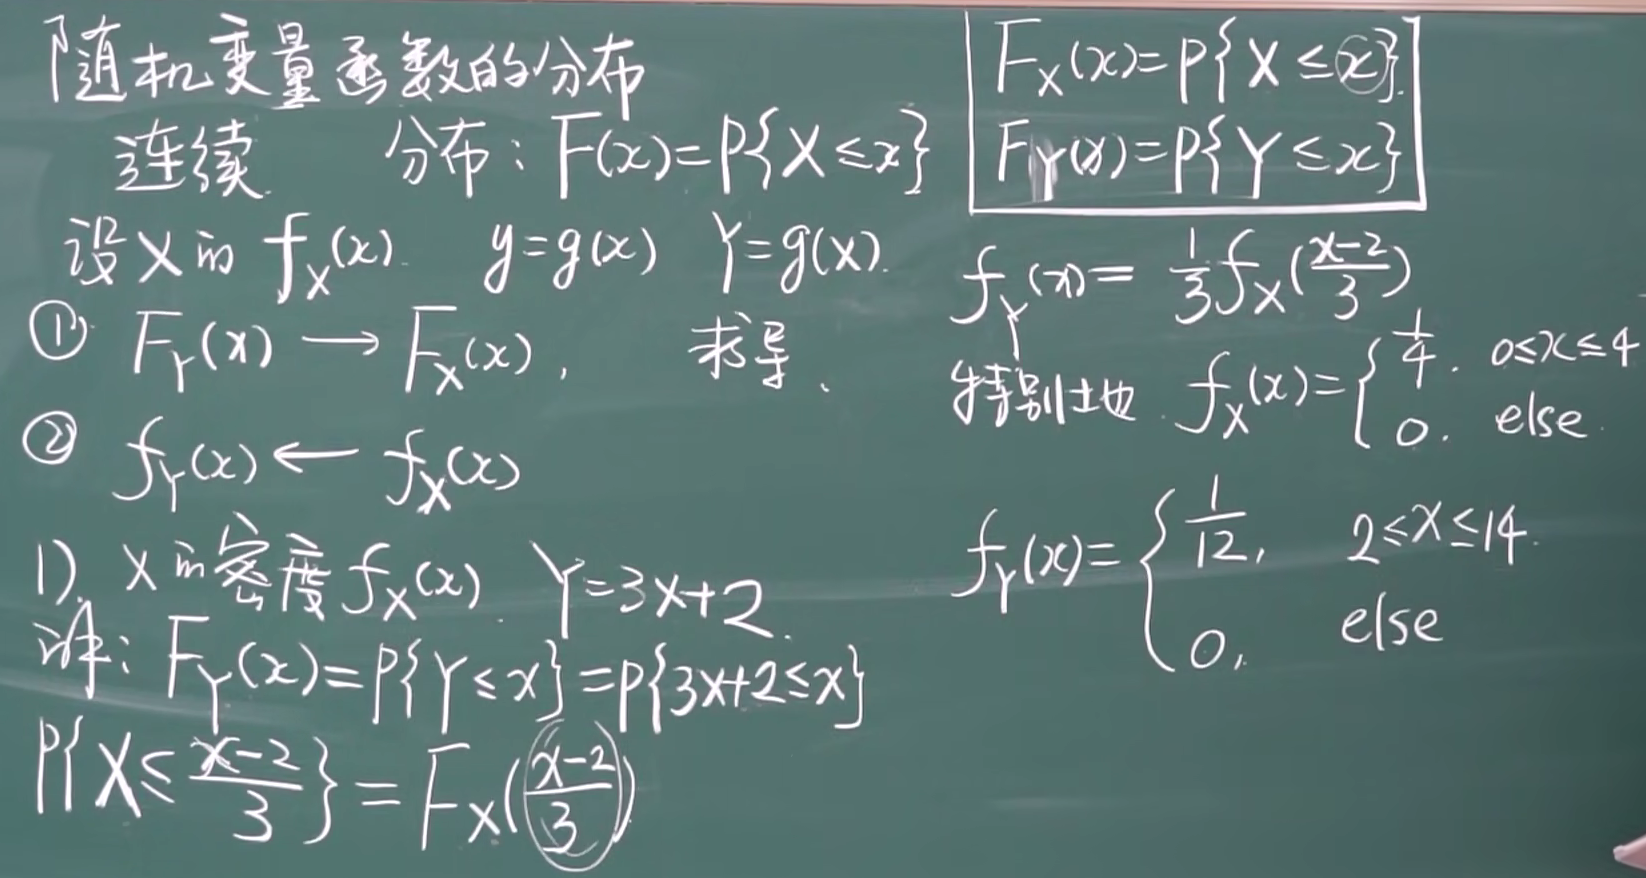 随机变量函数的分布
连续 分布: F(x)=P{X≤x}
设X的 f_X(x). y=g(x) Y=g(X).
① F_Y(x) → F_X(x), 求导、
② f_Y(x) ← f_X(x)
1). X的密度 f_X(x). Y=3X+2.
解: F_Y(x)=P{Y≤x}=P{3X+2≤x}
P{X≤(x-2)/3}=F_X((x-2)/3)
F_X(x)=P{X≤x}.
F_Y(x)=P{Y≤x}
f_Y(x)=1/3 f_X((x-2)/3)
特别地. f_X(x)={1/4. 0≤x≤4
0. else.
f_Y(x)={1/12, 2≤x≤14.
0, else